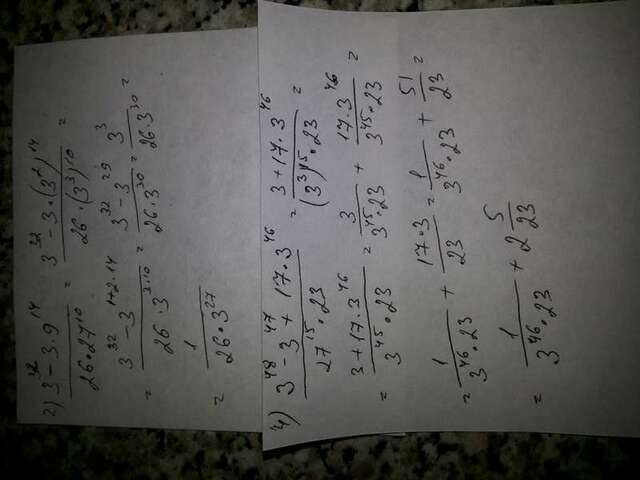 2) (3^32 - 3·9^14)/(26·27^10) = (3^32 - 3·(3^2)^14)/(26·(3^3)^10) =
= (3^32 - 3^(1+2·14))/(26·3^(3·10)) = (3^32 - 3^29)/(26·3^30) = 3^3/(26·3^30) =
= 1/(26·3^27)
4) (3^48 - 3^47 + 17·3^46)/(27^15·23) = (3 + 17·3^46)/((3^3)^15·23) =
= (3 + 17·3^46)/(3^45·23) = 3/(3^45·23) + (17·3^46)/(3^45·23) =
= 1/(3^46·23) + (17·3)/23 = 1/(3^46·23) + 51/23 =
= 1/(3^46·23) + 2 5/23